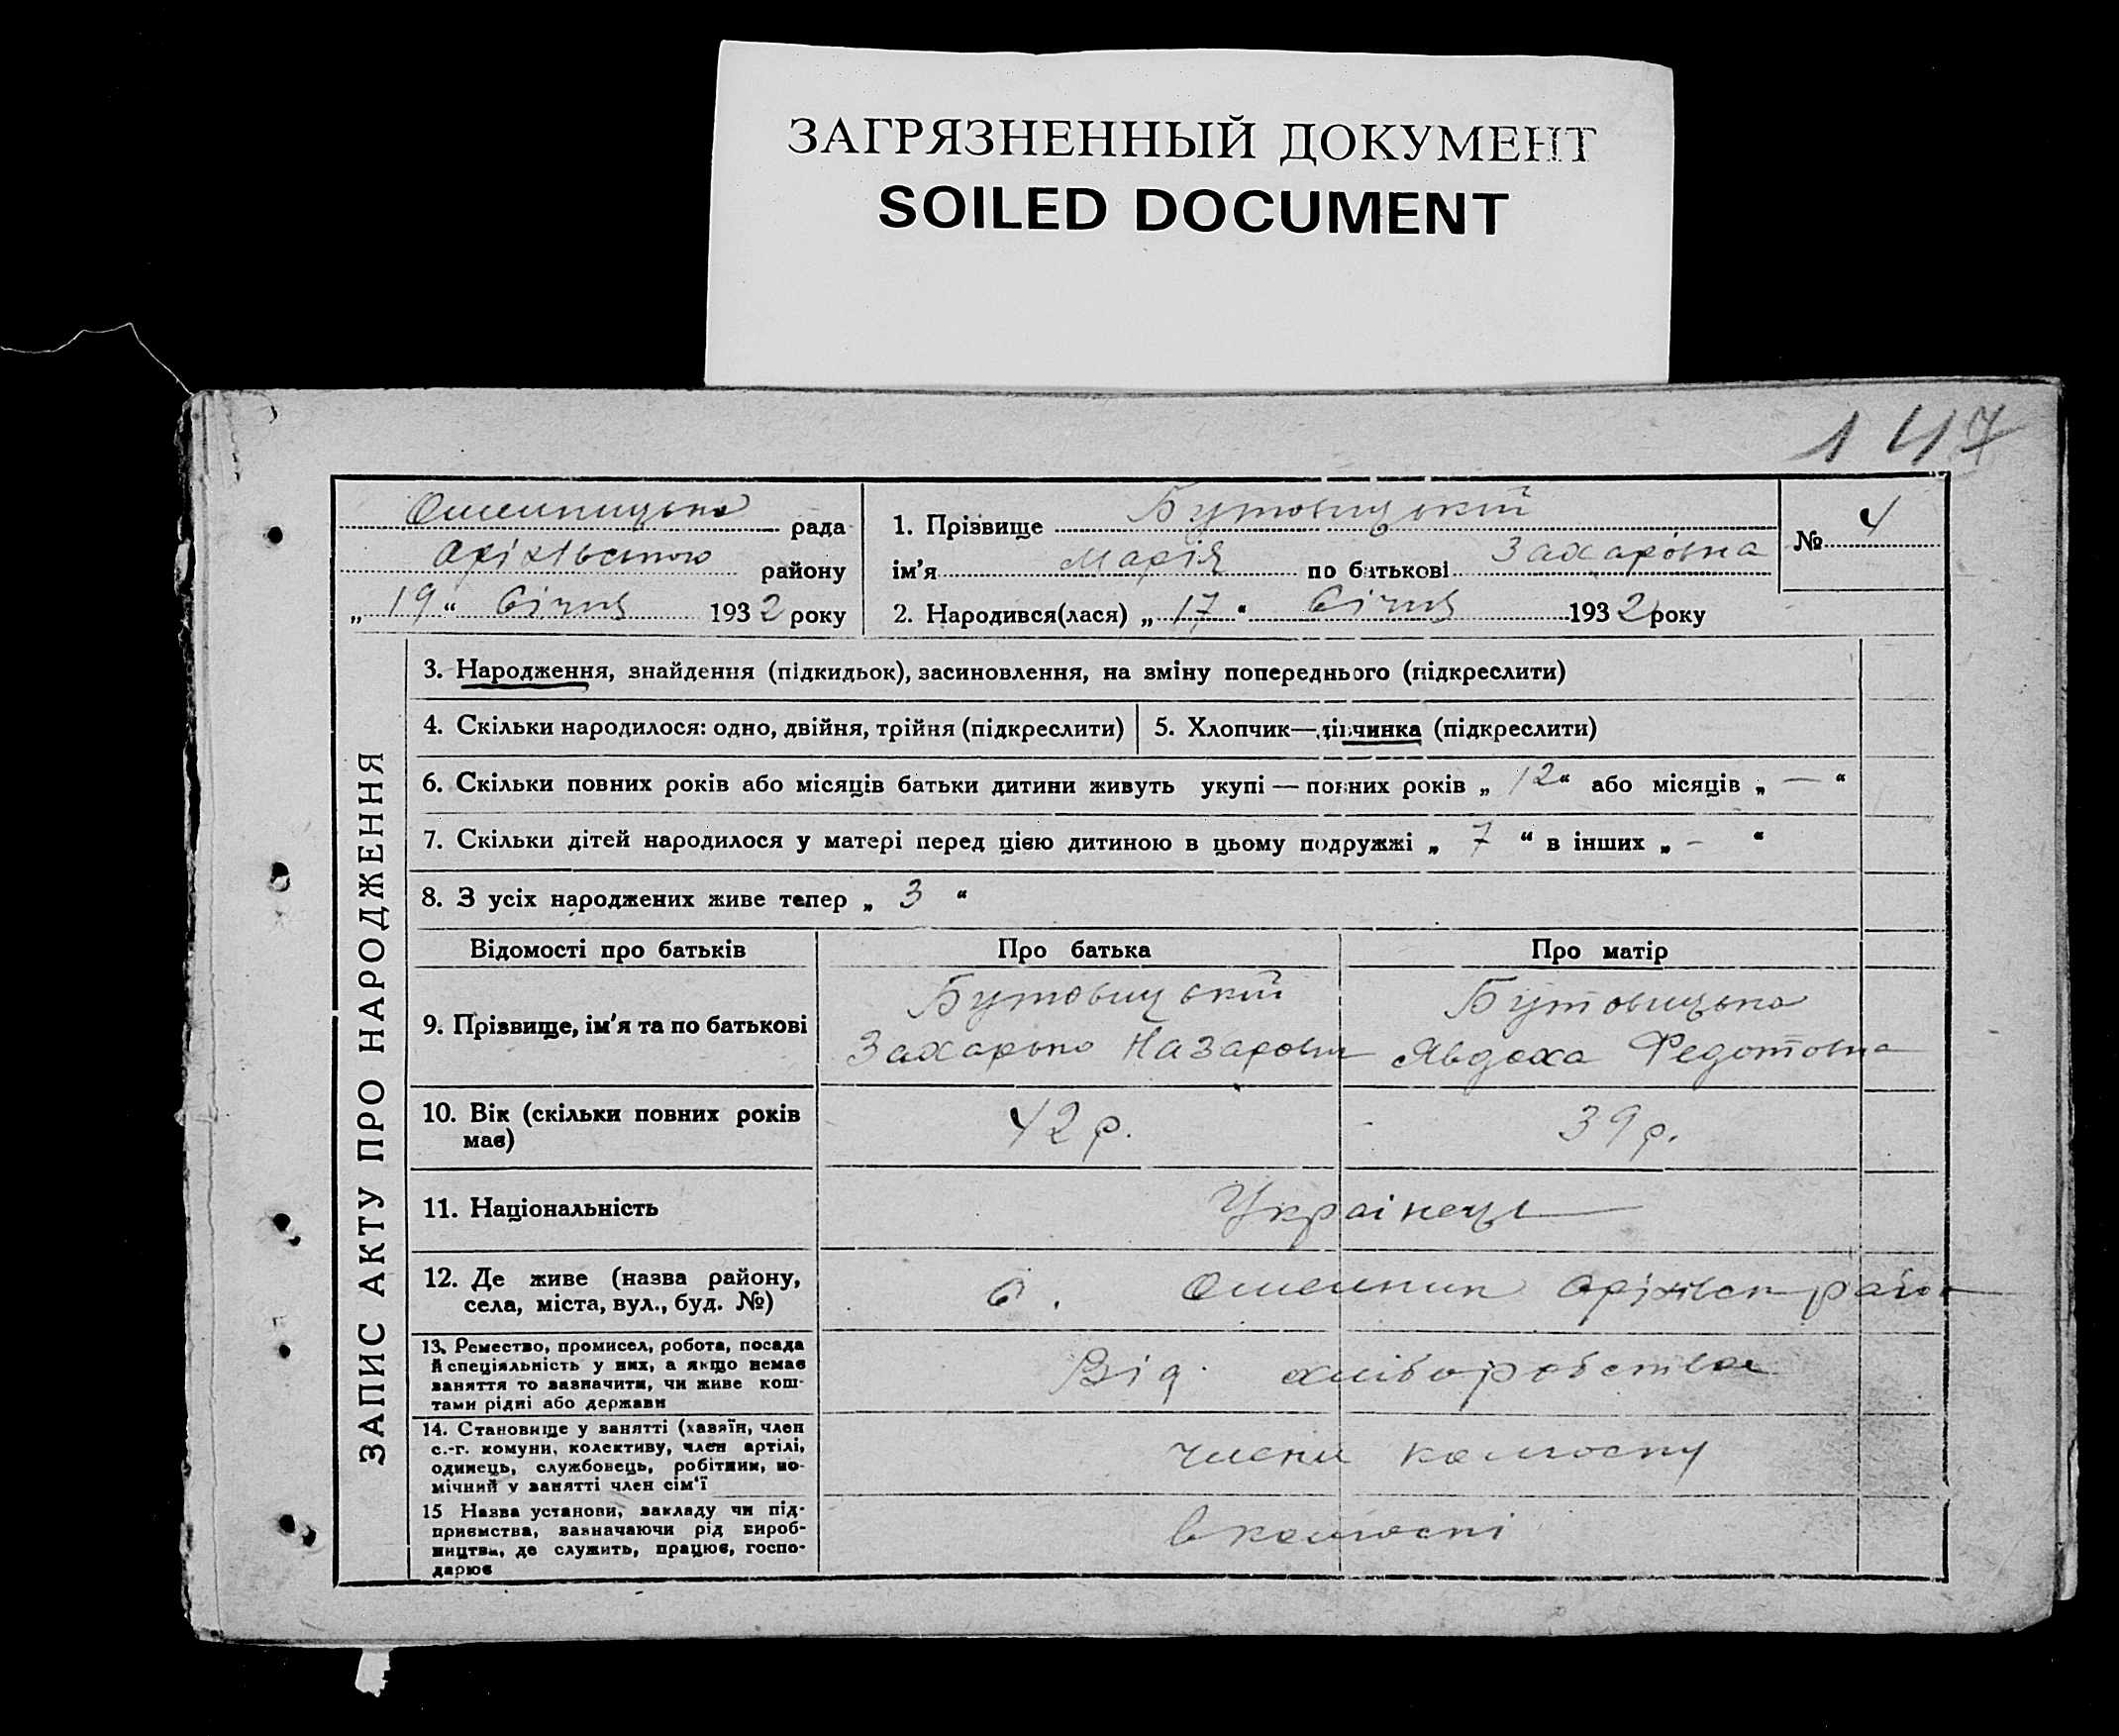 ЗАГРЯЗНЕННЫЙ ДОКУМЕНТ
SOILED DOCUMENT
147
рада
району
„ 19 “ Січня 1932 року
1. Прізвище Бутовицький
ім'я Марія по батькові Захарівна
2. Народився(лася) „ 17 “ Січня 1932 року
№ 4
ЗАПИС АКТУ ПРО НАРОДЖЕННЯ
3. Народження, знайдення (підкидьок), засиновлення, на зміну попереднього (підкреслити)
4. Скільки народилося: одно, двійня, трійня (підкреслити)
5. Хлопчик—дівчинка (підкреслити)
6. Скільки повних років або місяців батьки дитини живуть укупі — повних років „ 12 “ або місяців „ — “
7. Скільки дітей народилося у матері перед цією дитиною в цьому подружжі „ 7 “ в інших „ - “
8. З усіх народжених живе тепер „ 3 “
Відомості про батьків
Про батька
Про матір
9. Прізвище, ім'я та по батькові
Бутовицький
Захарько Назарович
Бутовицька
Явдоха Федотовна
10. Вік (скільки повних років
має)
42 р.
39 р.
11. Національність
Українець
12. Де живе (назва району,
села, міста, вул., буд. №)
с.
13. Ремество, промисел, робота, посада
й спеціяльність у них, а якщо немає
заняття то зазначити, чи живе кош-
тами рідні або держави
Від хліборобства
14. Становище у занятті (хазяїн, член
с.-г. комуни, колективу, член артілі,
одинець, службовець, робітник, по-
мічний у занятті член сім'ї
члени колгоспу
15 Назва установи, закладу чи під-
приємства, зазначаючи рід вироб-
ництва, де служить, працює, госпо-
дарює
в колгоспі